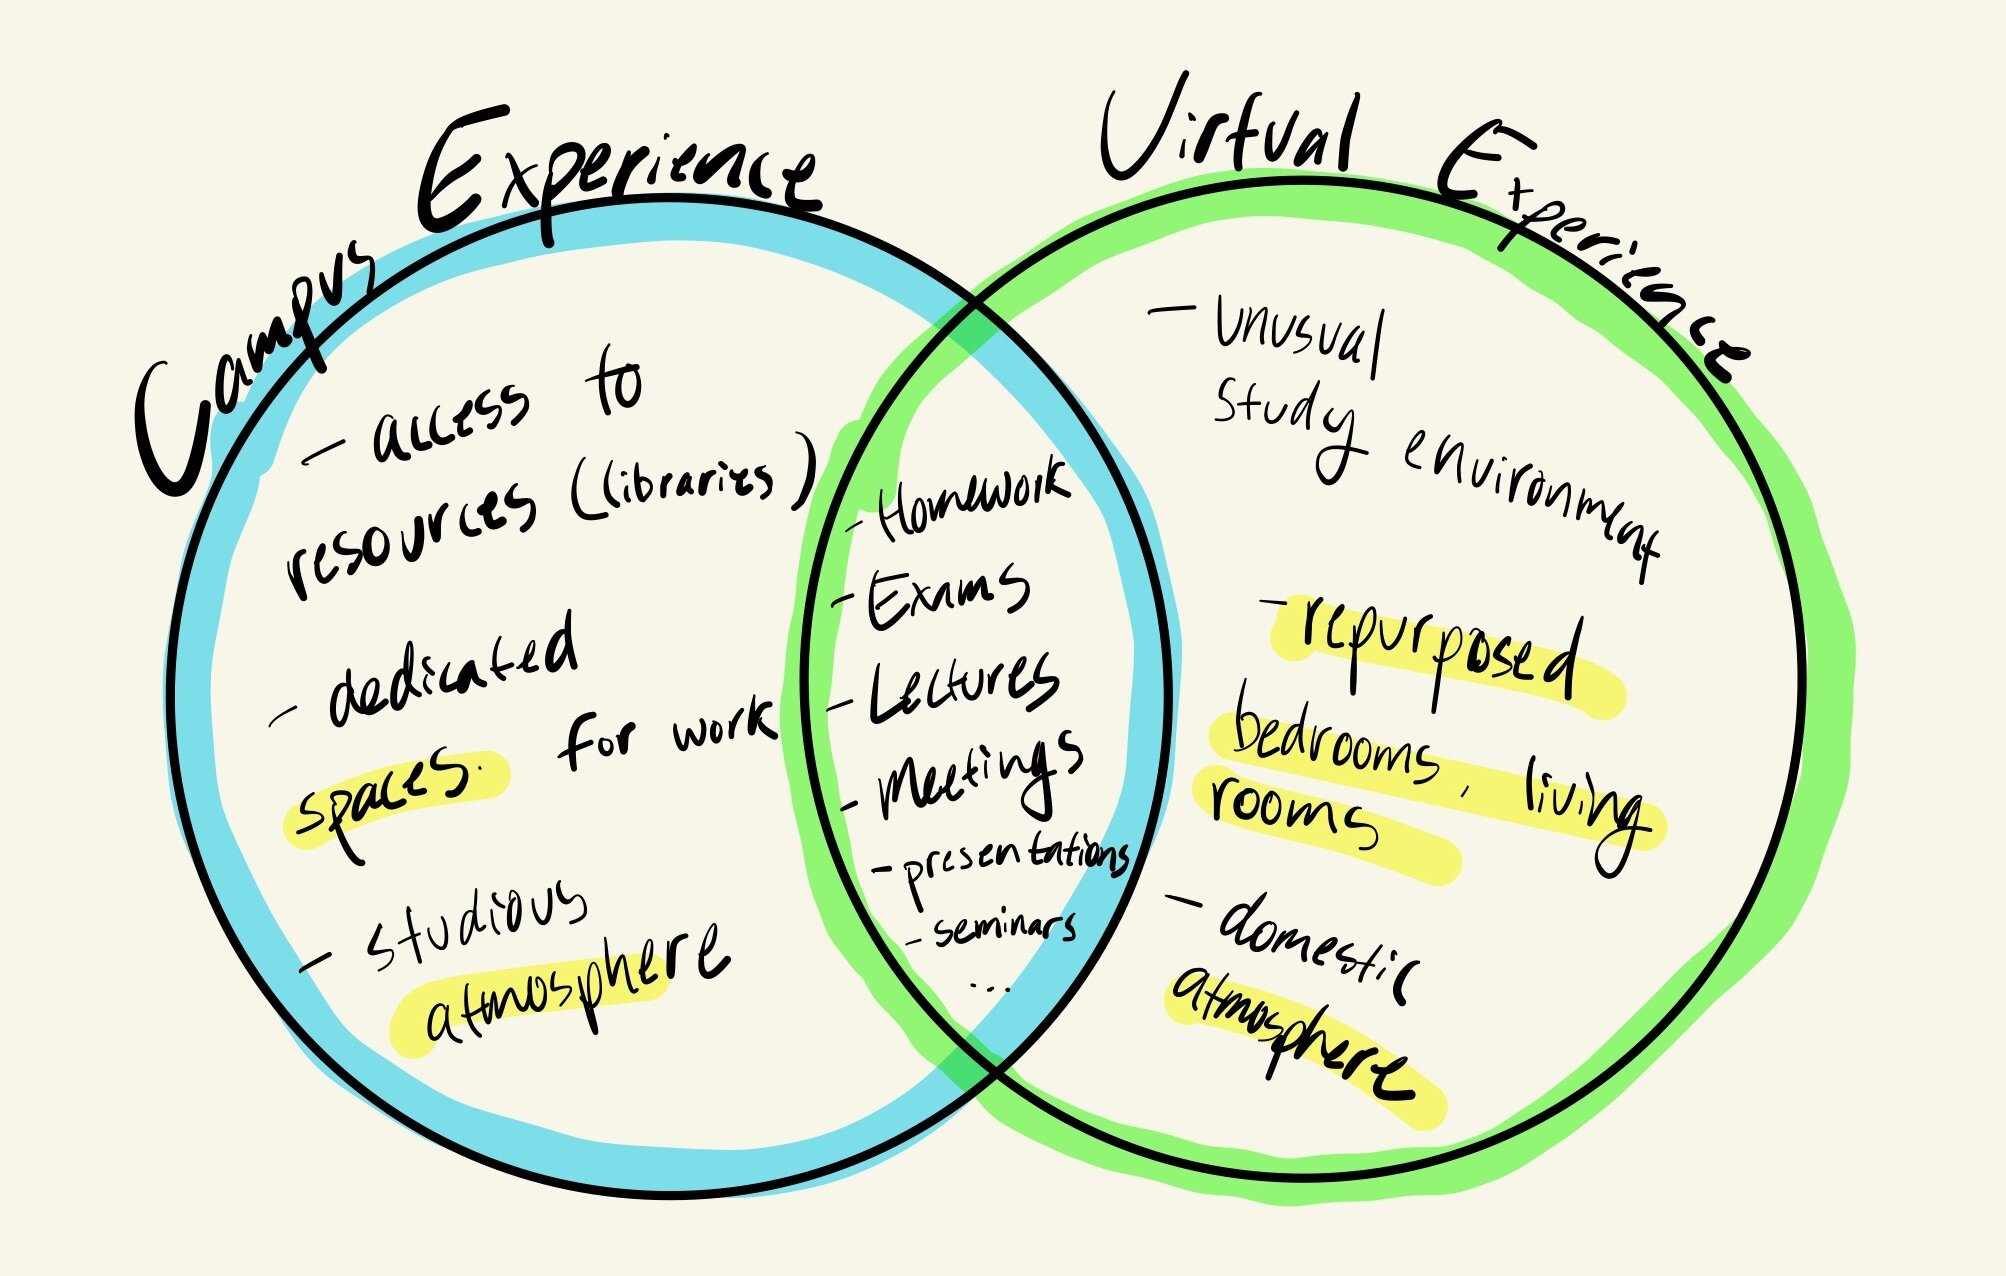 Campus Experience
- access to
resources (libraries)
- dedicated
spaces. for work
- studious
atmosphere
- Homework
- Exams
- Lectures
- Meetings
- presentations
- seminars
...
Virtual Experience
- unusual
study environment
- repurposed
bedrooms, living
rooms
- domestic
atmosphere